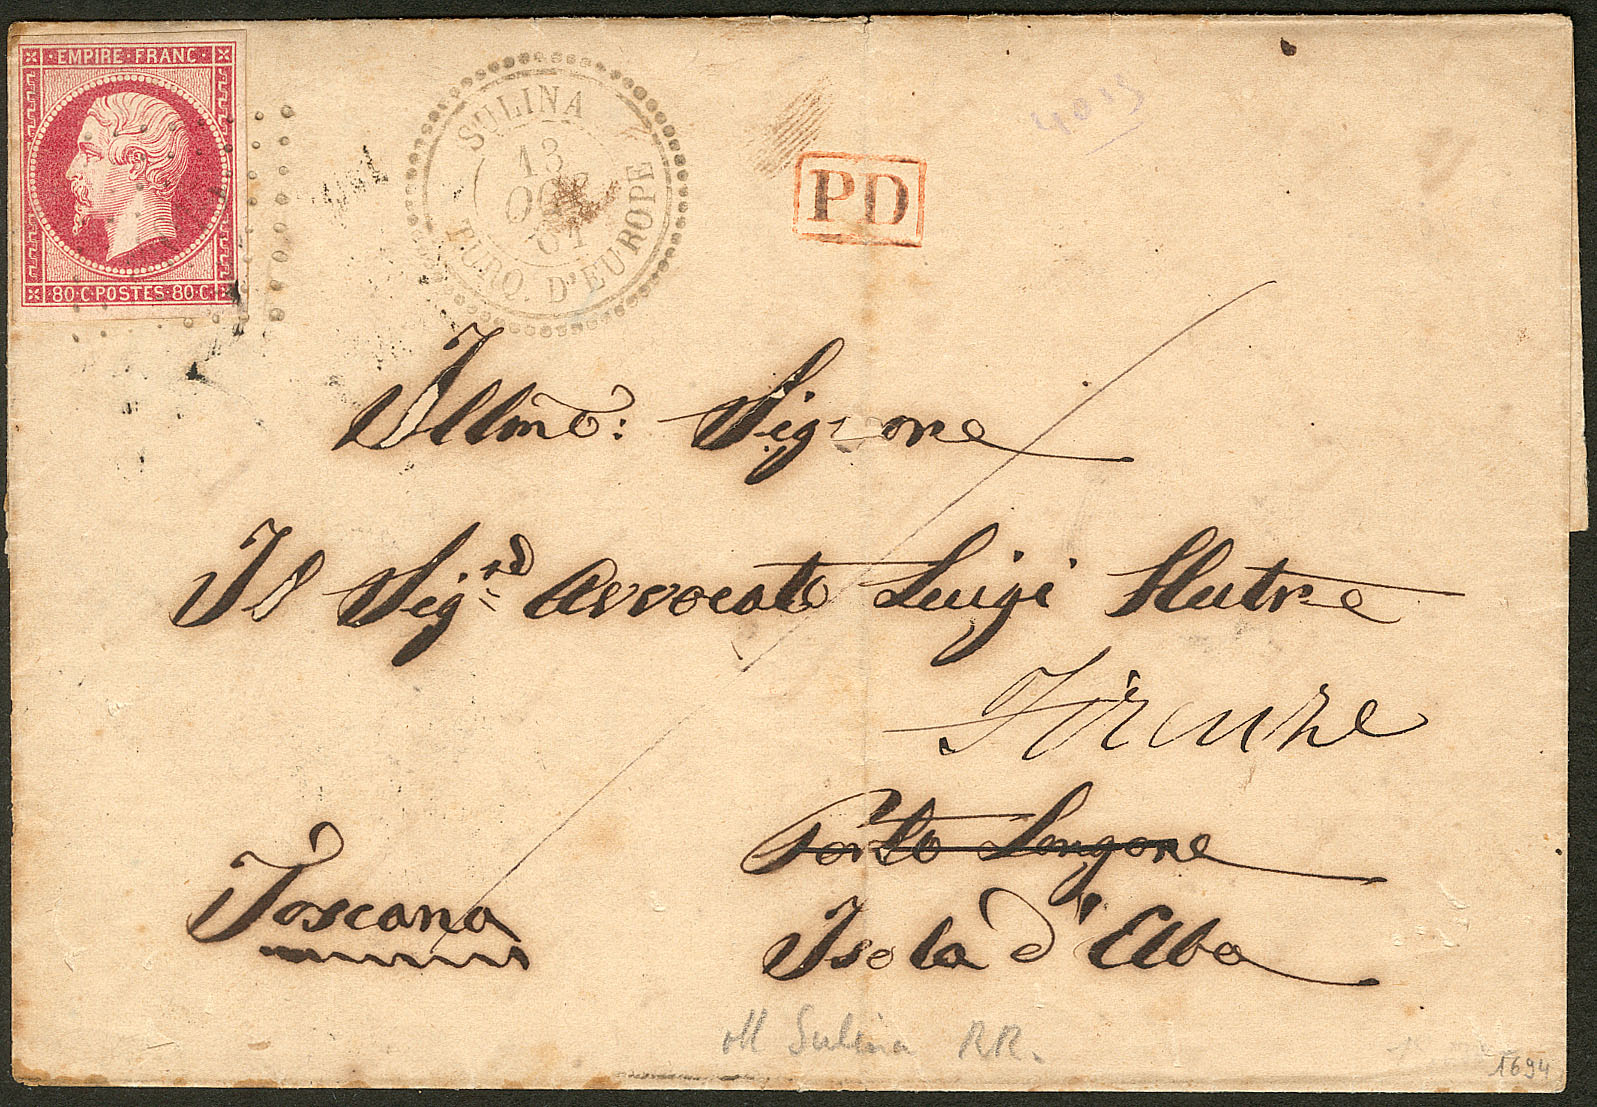 EMPIRE FRANC
80·C·POSTES·80·C
SULINA
13
OCT
61
TURQ. D'EUROPE
PD
4019
Illmo: Signore
Il Sigrd Avvocato Luigi
Firenze
Porto Longone
Toscana
Isola d'Elba
Sulina RR.
1694